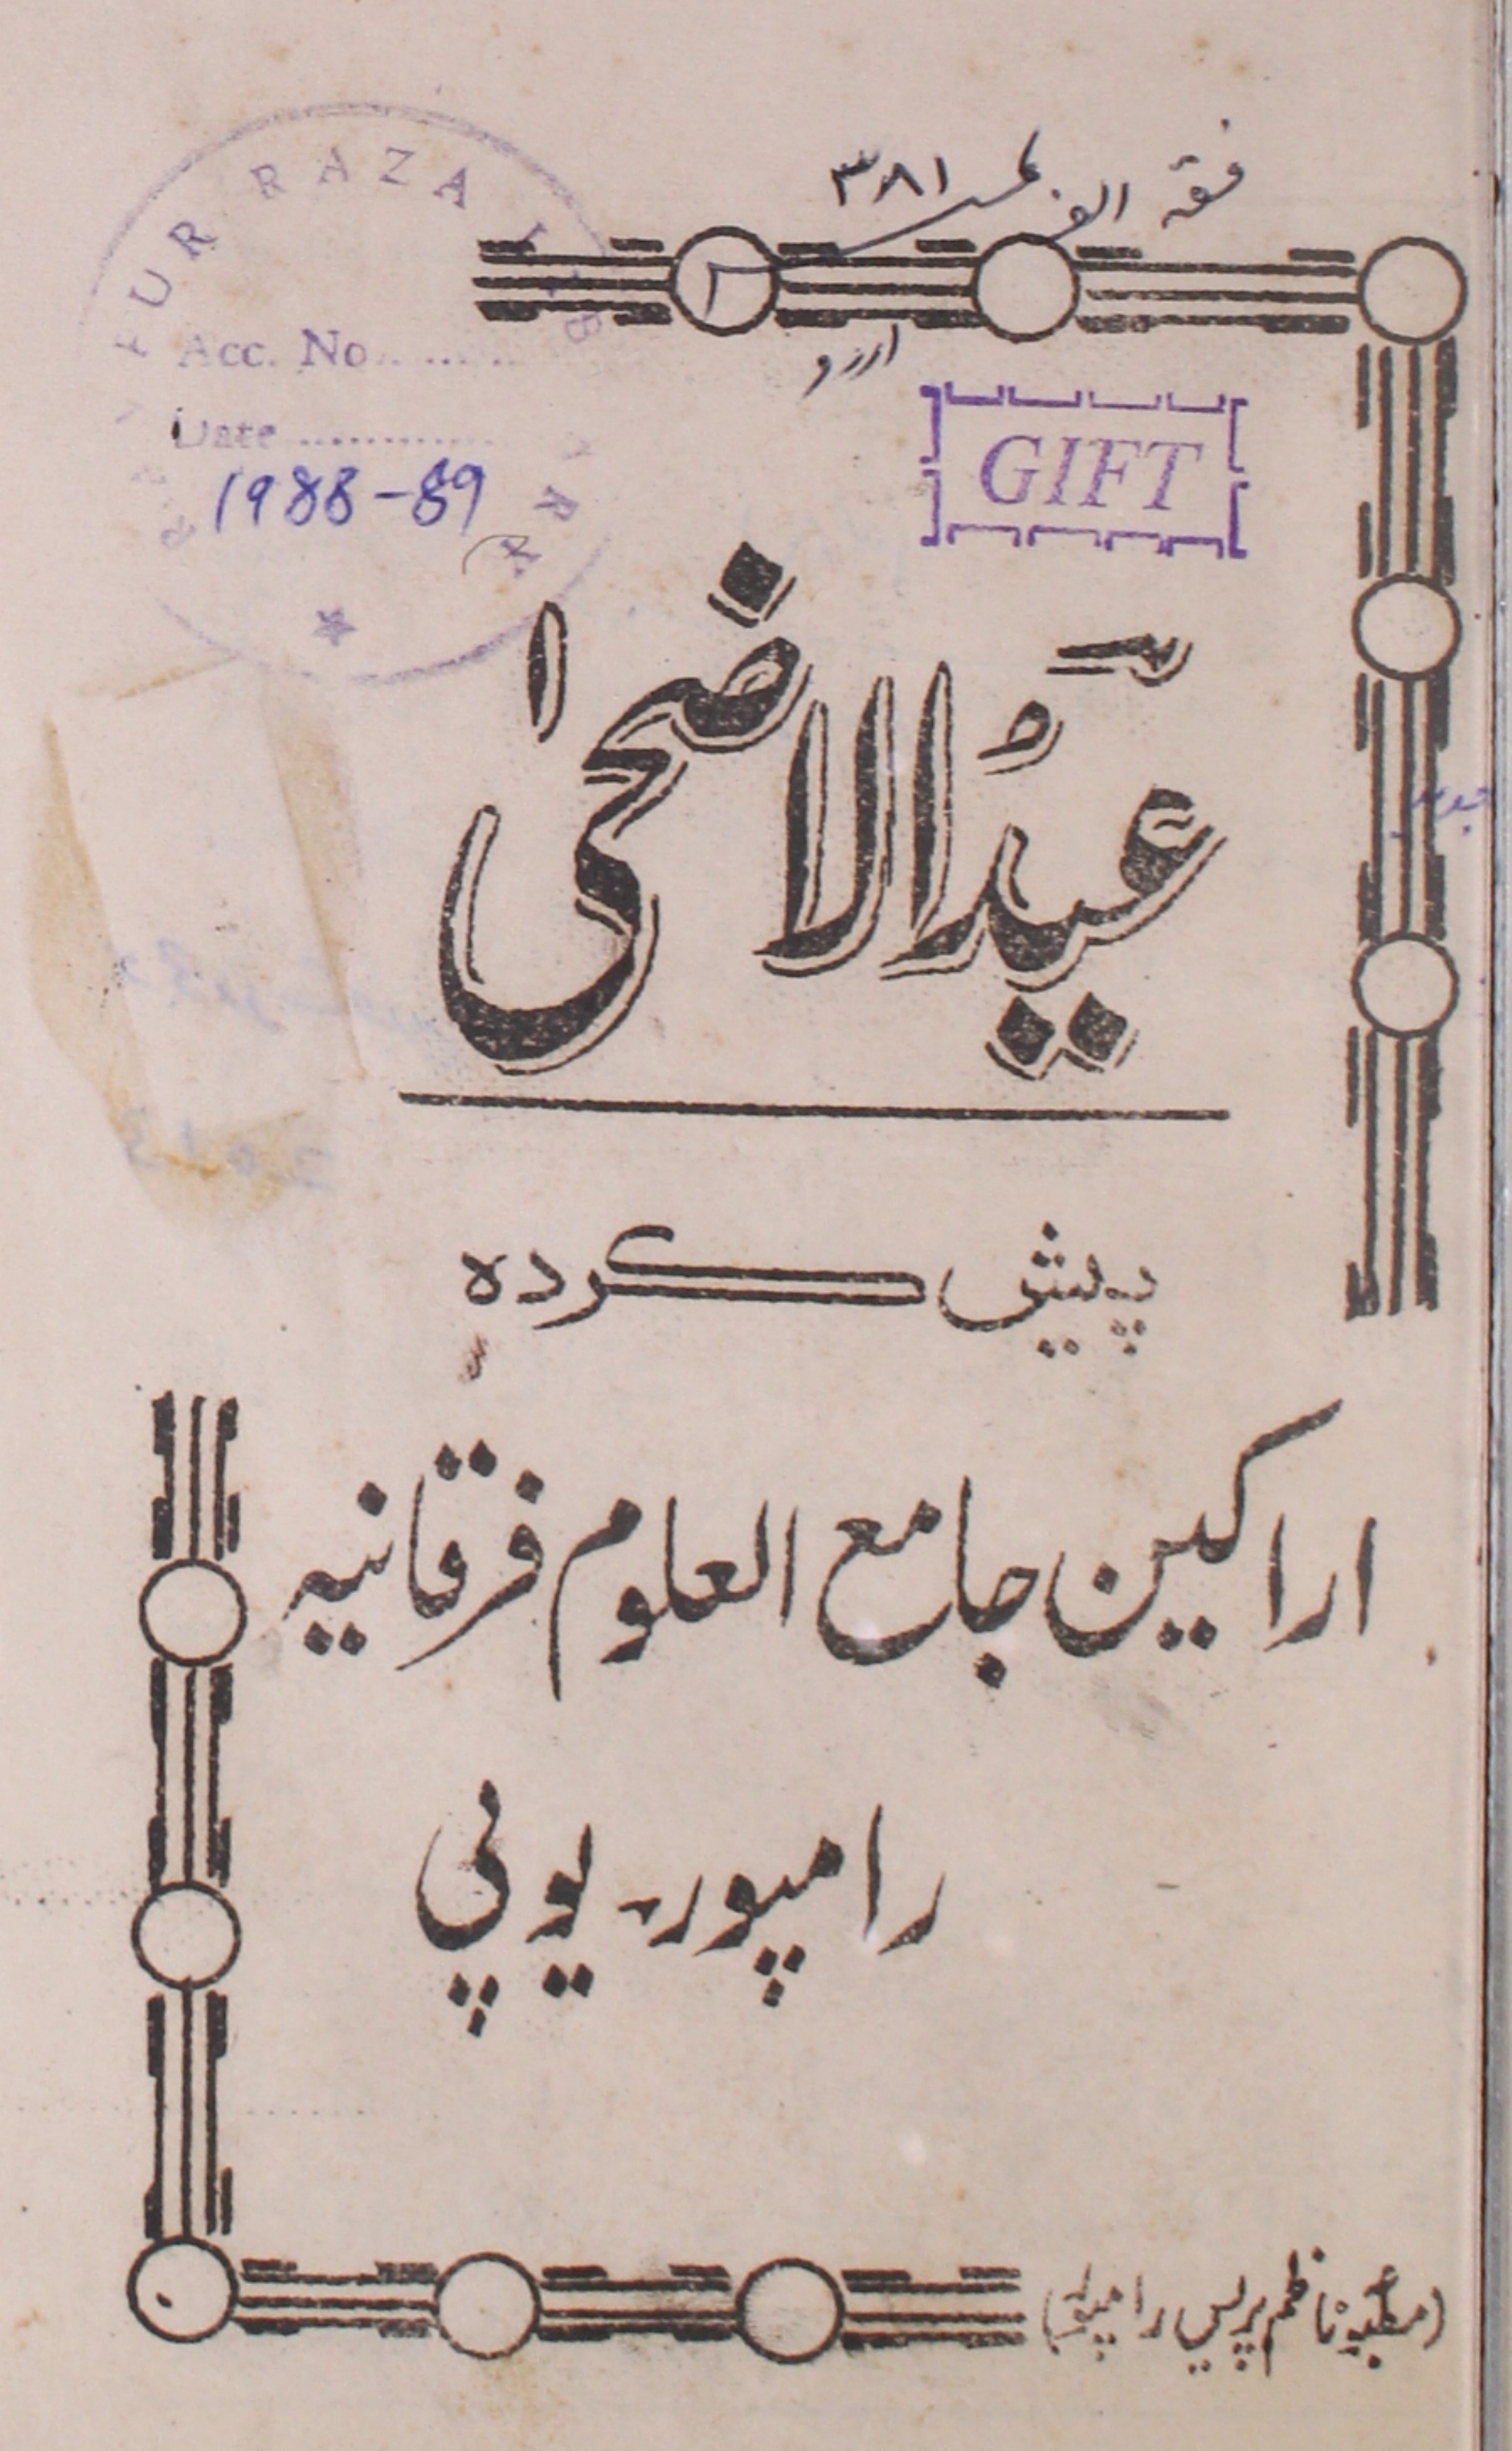 فقہ الف ۳۸۱
RAZA
PUR
اردو
Acc. No
Date
GIFT
1988-89
عیدُ الاضحیٰ
پیش کردہ
اراکین جامع العلوم فرقانیہ
رامپور۔ یوپی
(مطبوعہ ناظم پریس رامپور)